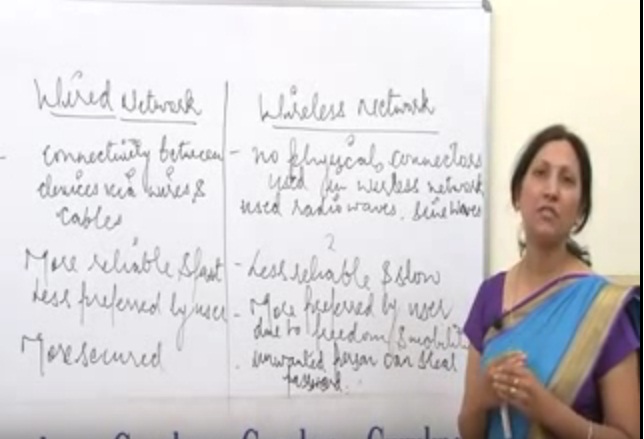 Wired Network
connectivity between
devices via wires &
cables
More reliable & fast
Less preferred by user
More secured
Wireless Network
- no physical connectors
used in wireless network
used radio waves.
- Less reliable & slow
- More preferred by user
due to freedom & mobility
unwanted person can steal
password.